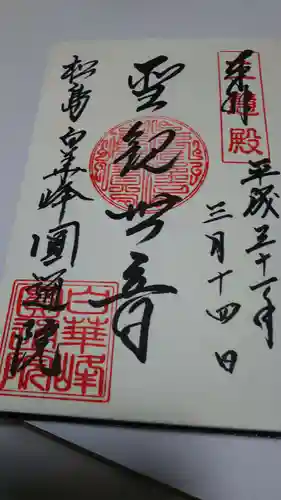 奉拝
平成三十一年
三月十四日
聖観世音
松島 白華峰 圓通院
白華峰